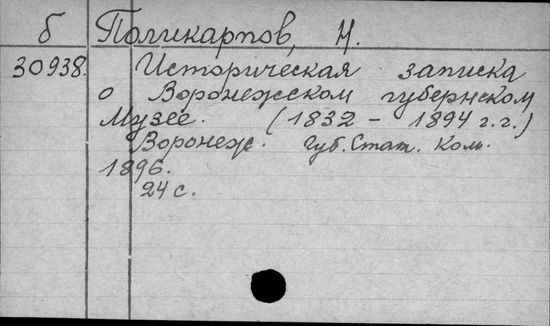 б Поликарпов, Н.
30938. Историческая записка
о Воронежском губернском
Музее. (1832 - 1894 г.г.)
Воронеж. Губ. Стат. Ком.
1896.
24 с.